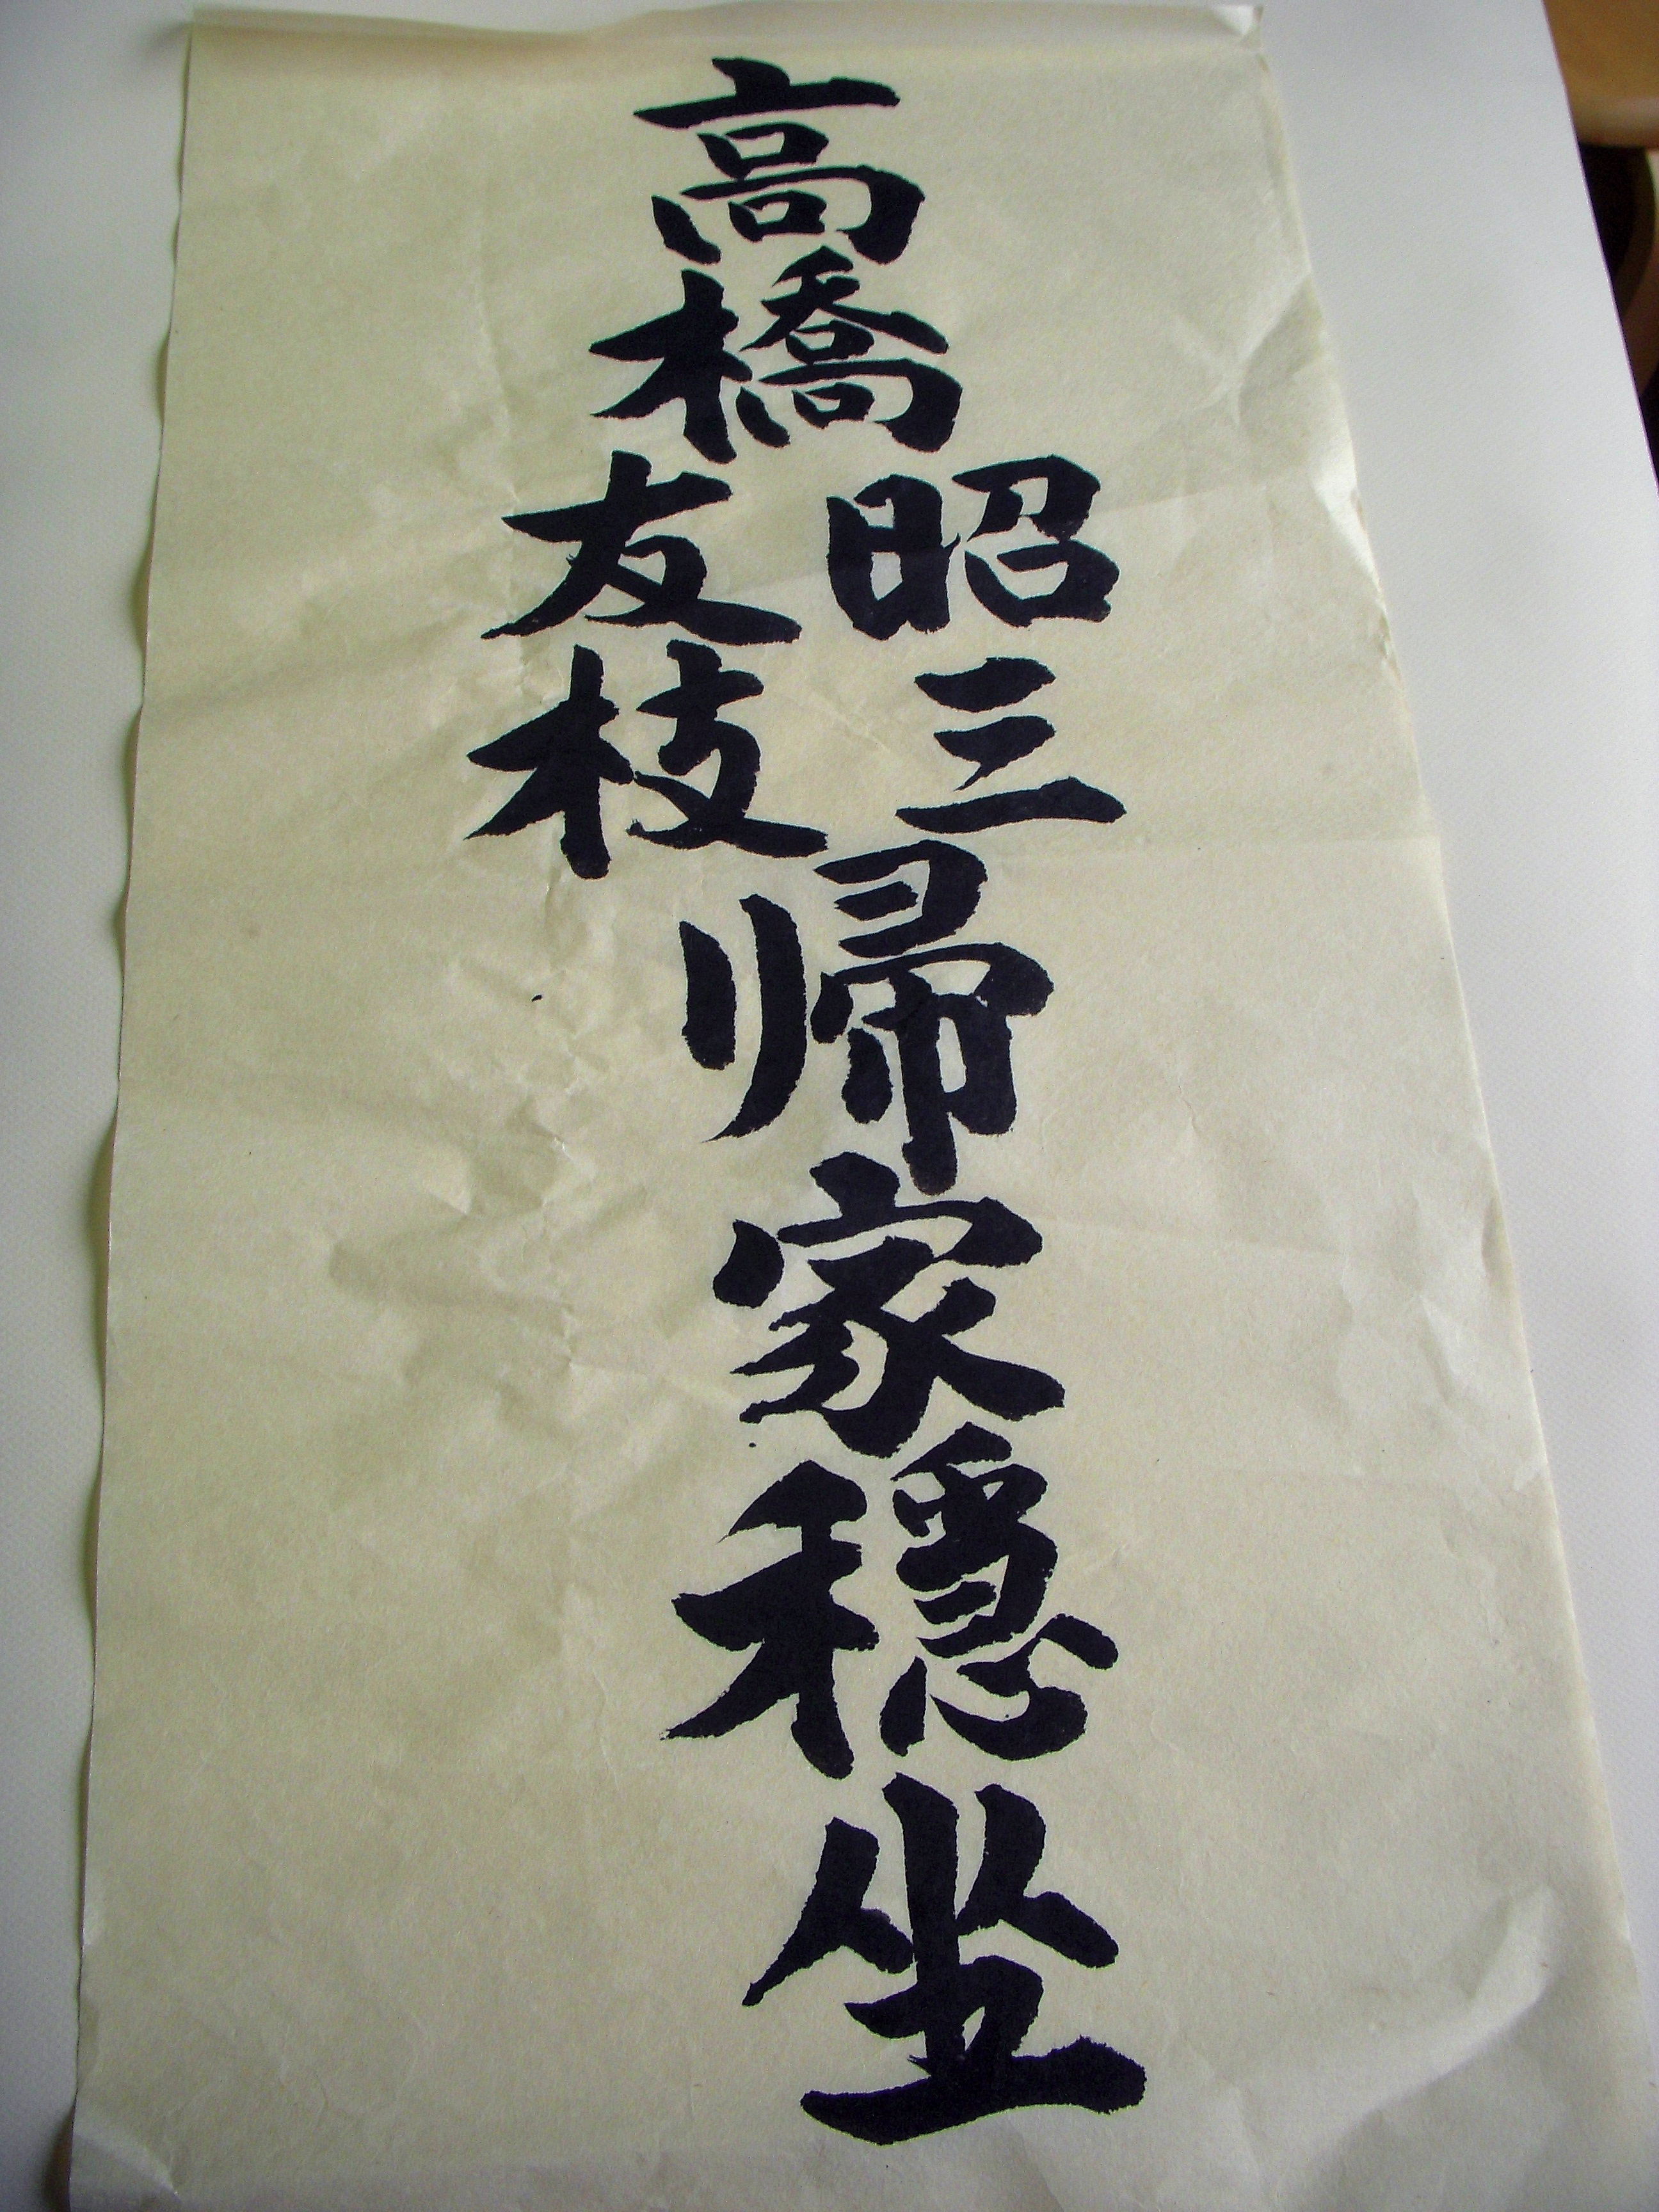 高橋
昭三
友枝
帰家穏坐